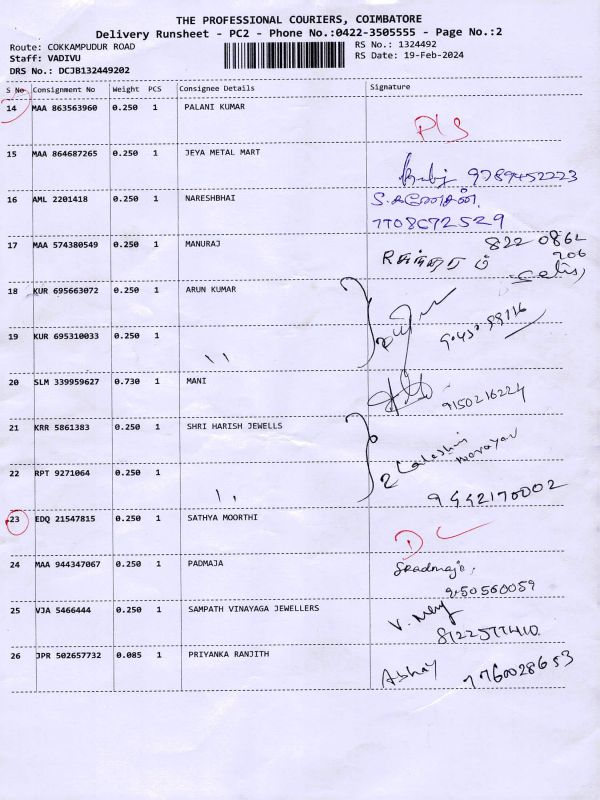 THE PROFESSIONAL COURIERS, COIMBATORE
Delivery Runsheet - PC2 - Phone No.:0422-3505555 - Page No.:2
Route: COKKAMPUDUR ROAD
Staff: VADIVU
DRS No.: DCJB132449202
RS No.: 1324492
RS Date: 19-Feb-2024
S No Consignment No Weight PCS Consignee Details Signature
14 MAA 863563960 0.250 1 PALANI KUMAR
15 MAA 864687265 0.250 1 JEYA METAL MART
9789452223
16 AML 2201418 0.250 1 NARESHBHAI
7708672529
17 MAA 574380549 0.250 1 MANURAJ
822 0862
206
18 KUR 695663072 0.250 1 ARUN KUMAR
19 KUR 695310033 0.250 1
20 SLM 339959627 0.730 1 MANI
9150216224
21 KRR 5861383 0.250 1 SHRI HARISH JEWELLS
22 RPT 9271064 0.250 1
9442170002
23 EDQ 21547815 0.250 1 SATHYA MOORTHI
D
24 MAA 944347067 0.250 1 PADMAJA
25 VJA 5466444 0.250 1 SAMPATH VINAYAGA JEWELLERS
26 JPR 502657732 0.085 1 PRIYANKA RANJITH
Abhay 7760028653